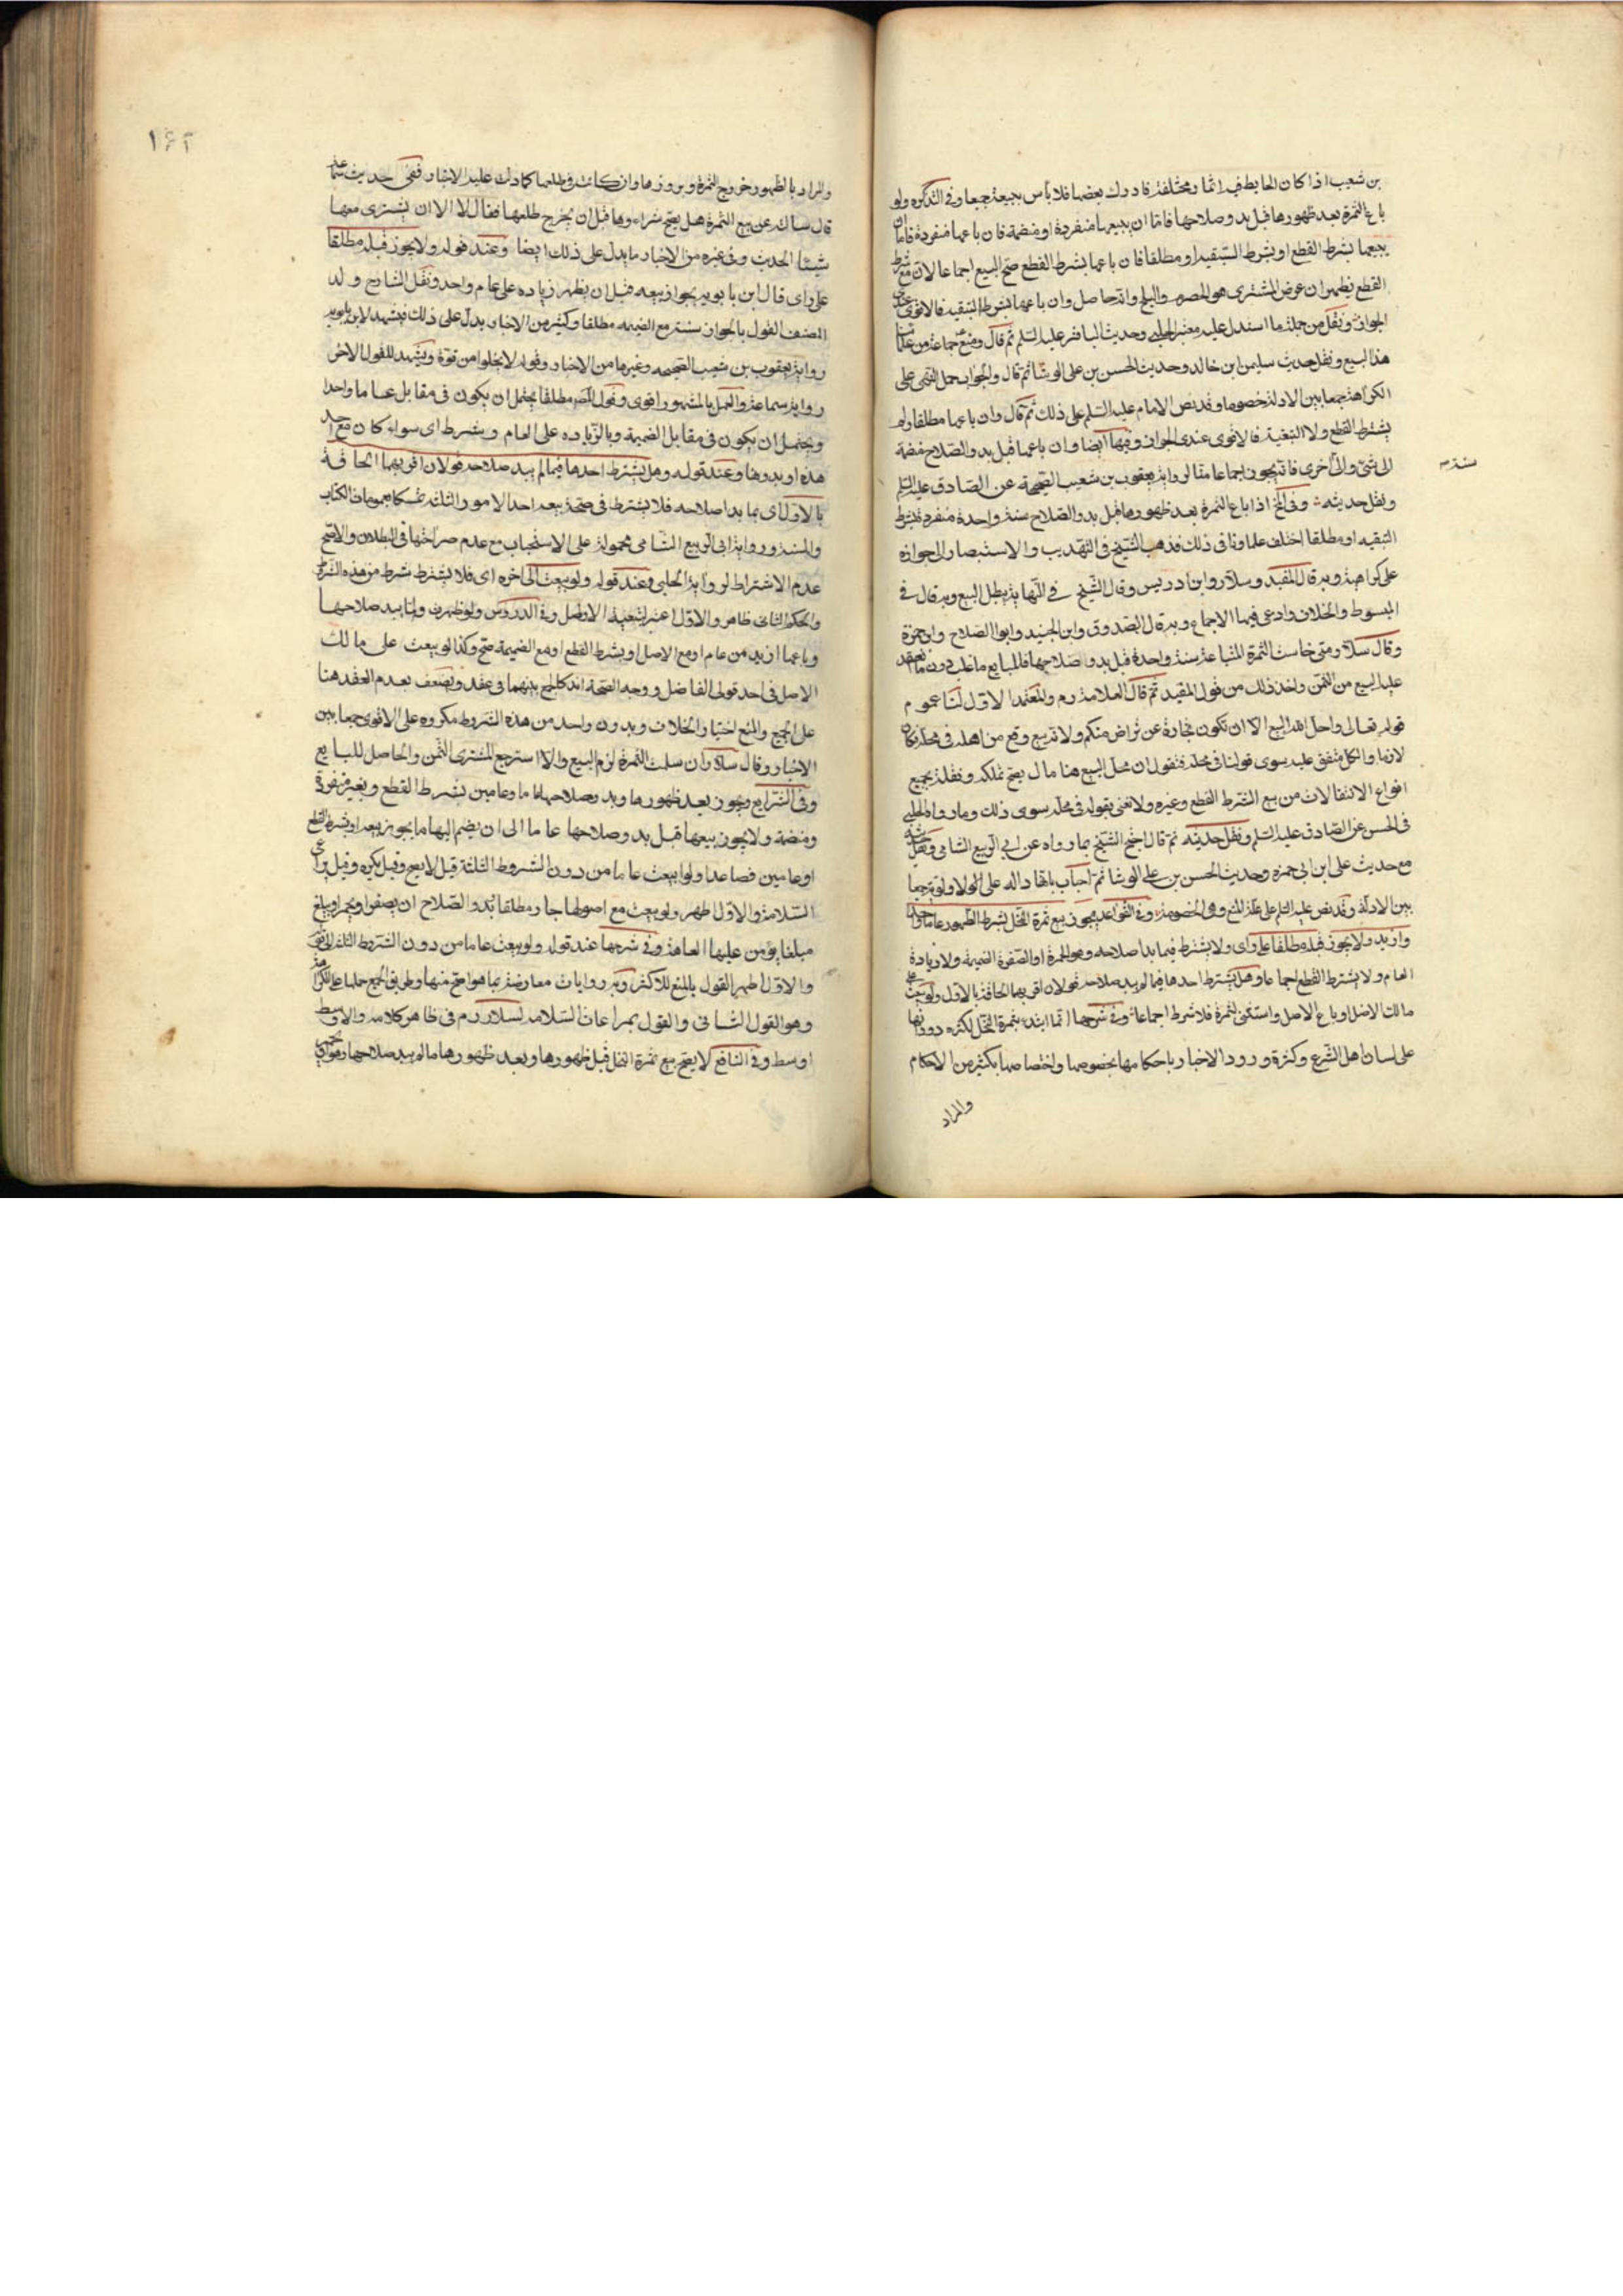 بن شعيب اذا كان الحايط فيه اثمار مختلفة فادرك بعضها فلا بأس ببيعه جميعا وفي التذكرة ولو
باع الثمرة بعد ظهورها قبل بدو صلاحها فاما ان يبيعها منفردة او منضمة فان باعها منفردة فاما ان
يبيعها بشرط القطع او بشرط التبقية او مطلقا فان باعها بشرط القطع صح البيع اجماعا لان مع شرط
القطع يظهر ان غرض المشتري هو الحصرم والبلح وانه حاصل وان باعها بشرط التبقية فالاقوى عندي
الجواز ونقل من جملة ما استدل عليه معتبر الحلبي وحديث الباقر عليه السلم ثم قال ومنع جماعة من علمائنا
هذا البيع ونقل حديث سليمن ابن خالد وحديث الحسن بن علي الوشا ثم قال والجواب حمل النهي على
الكراهة جمعا بين الادلة خصوصا وقد نص الامام عليه السلم على ذلك ثم قال وان باعها مطلقا ولم
يشترط القطع ولا التبقية فالاقوى عندي الجواز وفيها ايضا وان باعها قبل بدو الصلاح منضمة
الى شئ والى اخرى فانه يجوز اجماعا منا لرواية يعقوب بن شعيب الصحيحة عن الصادق عليه السلم
ونقل حديثه وفي لخ اذا باع الثمرة بعد ظهورها قبل بدو الصلاح سنة واحدة منفردة بشرط
التبقيه او مطلقا اختلف علماؤنا في ذلك فذهب الشيخ في التهذيب والاستبصار الى جوازه
على كراهية وبه قال المفيد وسلار وابن ادريس وقال الشيخ في النهاية يبطل البيع وبه قال في
المبسوط والخلاف وادعى فيهما الاجماع وبه قال الصدوق وابن الجنيد وابو الصلاح وابن حمزة
وقال سلار ومتى خاست الثمرة المتباعة سنة واحدة قبل بدو صلاحها فللبايع ما غلب دون ما انعقد
عليه البيع من الثمن واخذ ذلك من قول المفيد ثم قال العلامة رم والمعتمد الاول لنا عموم
قوله تعالى واحل الله البيع الا ان تكون تجارة عن تراض منكم ولانه بيع وقع من اهله في محله فكان
لازما والكل متفق عليه سوى قولنا في محله فنقول ان محل البيع هنا مال يصح تملكه ونقله بجميع
انواع الانتقالات من بيع الشرط القطع وغيره ولا نعني بقوله في محله سوى ذلك وما رواه الحلبي
في الحسن عن الصادق عليه السلم ونقل حديثه ثم قال احتج الشيخ بما رواه عن ابي الربيع الشامي ونقل حديثه
مع حديث علي ابن ابي حمزه وحديث الحسن بن علي الوشا ثم اجاب بانها داله على الاولوية جمعا
بين الادلة وقد نص عليه السلم على علة المنع وهي الخصومة وفي القواعد يجوز بيع ثمرة النخل بشرط الظهور عاما واحدا
وازيد ولا يجوز قبله مطلقا على راى ولا يشترط فيما بدا صلاحه وهو الحمرة او الصفرة الضميمة ولا زيادة
العام ولا يشترط القطع اجماعا وهل يشترط احدها فيما لم يبد صلاحه قولان اقربهما الحاقه بالاول ولو بيعت على
مالك الاصل او باع الاصل واستثنى الثمرة فلا شرط اجماعا وفي شرحها انما ابتدء بثمرة النخل لكثره دورانها
على لسان اهل الشرع وكثرة ورود الاخبار باحكامها بخصوصها واختصاصها بكثير من الاحكام
والمراد
١٤٢
والمراد بالظهور خروج الثمرة وبروزها وان كانت في طلعها كما دلت عليه الاخبار ففي حديث سماعة
قال سالته عن بيع الثمرة هل يصح شراءوها قبل ان يخرج طلعها فقال لا الا ان يشترى معها
شيئا الحديث وفي غيره من الاخبار ما يدل على ذلك ايضا وعند قوله ولا يجوز قبله مطلقا
على راى قال ابن بابويه بجواز بيعه قبل ان يظهر زياده على عام واحد ونقل الشارح ولد
المصنف القول بالجواز سنة مع الضميمه مطلقا وكثير من الاخبار يدل على ذلك فيشهد لابن بابويه
رواية يعقوب بن شعيب الصحيحه وغيرها من الاخبار وقوله لا يخلوا من قوة ويشهد للقول الاخر
رواية سماعة والعمل بالمشهور اقوى وقول المص مطلقا يحتمل ان يكون في مقابل عاما واحدا
ويحتمل ان يكون في مقابل الضميمة وبالزياده على العام وبشرط اى سواء كان مع احد
هذه او بدونها وعند قوله وهل يشترط احدها فيما لم يبد صلاحه قولان اقربهما الحاقه
بالاول اى بما بدا صلاحه فلا يشترط في صحة بيعه احد الامور الثلثة تمسكا بعمومات الكتاب
والسنة ورواية ابي الربيع الشامي محمولة على الاستحباب مع عدم صراحتها في البطلان والاصح
عدم الاشتراط لرواية الحلبي وعند قوله ولو بيعت الى اخره اى فلا يشترط شرط من هذه الشرط
والحكم الثاني ظاهر والاول اعتبر لتبعية الاصل وفي الدروس ولو ظهرت ولما يبد صلاحها
وباعها ازيد من عام او مع الاصل او بشرط القطع او مع الضميمة صح وكذا لو بيعت على مالك
الاصل في احد قولي الفاضل ووجه الصحة انه كالجمع بينهما في عقد ويضعف بعدم العقد هنا
على الجميع والمنع اختيار الخلاف وبدون واحد من هذه الشروط مكروه على الاقوى جمعا بين
الاخبار وقال سلار ان سلمت الثمرة لزم البيع والا استرجع المشتري الثمن والحاصل للبايع
وفي الشرايع ويجوز بعد ظهورها وبدو صلاحها عاما وعامين بشرط القطع وبغيره منفردة
ومنضمة ولا يجوز بيعها قبل بدو صلاحها عاما الى ان يضم اليها ما يجوز بيعه او بشرط القطع
او عامين فصاعدا ولو ابيعت عاما من دون الشروط الثلثة قيل لا يصح وقيل يكره وقيل يراعى
السلامة والاول اظهر ولو بيعت مع اصولها جاز مطلقا وبدو الصلاح ان يصفر او يحمر او يبلغ
مبلغا يؤمن عليها العاهة وفي شرحها عند قوله ولو بيعت عاما من دون الشروط الثلثة الى قوله
والاول اظهر القول بالمنع للاكثر وبه روايات معارضة بما هو اصح منها وطريق الجمع حملها على الكراهة
وهو القول الثاني والقول بمراعاة السلامة لسلار رم في ظاهر كلامه والاوسط
اوسط وفي النافع لا يصح بيع ثمرة النخل قبل ظهورها وبعد ظهورها ما لم يبد صلاحها